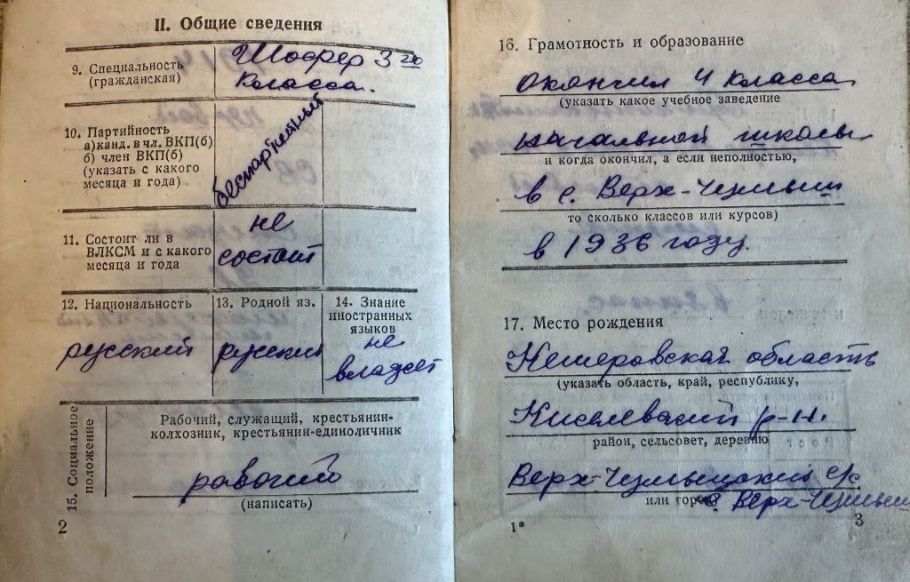 II. Общие сведения
9. Специальность
(гражданская)
Шофер 3го
класса.
10. Партийность
а) канд. в чл. ВКП(б)
б) член ВКП(б)
(указать с какого
месяца и года)
беспартийный
11. Состоит ли в
ВЛКСМ и с какого
месяца и года
не
состоит
12. Национальность
русский
13. Родной яз.
русский
14. Знание
иностранных
языков
не
владеет
15. Социальное
положение
Рабочий, служащий, крестьянин-
колхозник, крестьянин-единоличник
рабочий
(написать)
2
16. Грамотность и образование
Окончил 4 класса
(указать какое учебное заведение
начальной школы
и когда окончил, а если неполностью,
в с. Верх-Чумыш
то сколько классов или курсов)
в 1936 году.
17. Место рождения
Кемеровская область
(указать область, край, республику,
Киселевский р-н.
район, сельсовет, деревню
Верх-Чумышский с/с
или город)
с. Верх-Чумыш
1*
3